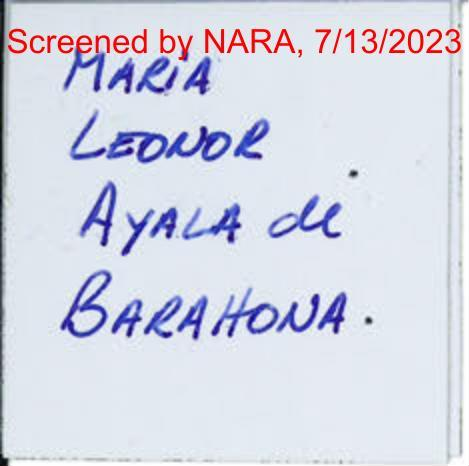 Screened by NARA, 7/13/2023
MARIA
LEONOR
AYALA de
BARAHONA.